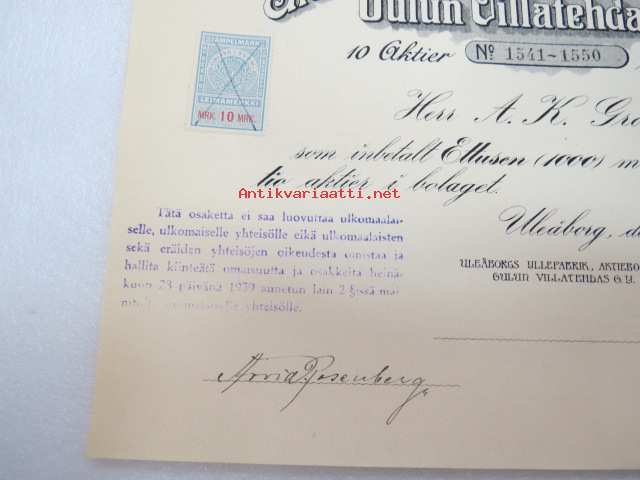 Oulun Villatehdas
10 Aktier No 1541-1550
STÄMPELMARK
LEIMAMERKKI
MRK. 10 MRK.
Herr A. K. Gro
som inbetalt Ettusen (1000) m
tio aktier i bolaget.
Antikvariaatti.net
rekisteröitynyt
Tätä osaketta ei saa luovuttaa ulkomaalai-
selle, ulkomaiselle yhteisölle eikä ulkomaalaisten
sekä eräiden yhteisöjen oikeudesta omistaa ja
hallita kiinteätä omaisuutta ja osakkeita heinä-
kuun 28 päivänä 1939 annetun lain 2 §:ssä mai-
nitulle yhteisölle.
Uleåborg, de
ULEÅBORGS YLLEFABRIK, AKTIEBO
OULUN VILLATEHDAS O.Y.
Arvid Rosenberg